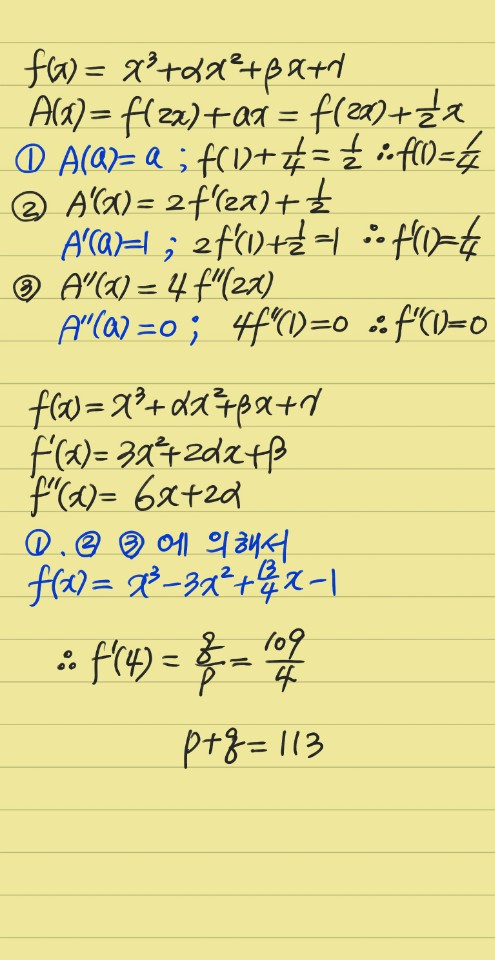 f(x) = x³+αx²+βx+γ
A(x) = f(2x)+ax = f(2x)+½x
① A(a)=a ; f(1)+¼=½ ∴f(1)=¼
② A'(x) = 2f'(2x)+½
A'(a)=1 ; 2f'(1)+½=1 ∴f'(1)=¼
③ A''(x) = 4f''(2x)
A''(a)=0 ; 4f''(1)=0 ∴f''(1)=0
f(x) = x³+αx²+βx+γ
f'(x) = 3x²+2αx+β
f''(x) = 6x+2α
①.②③에 의해서
f(x) = x³-3x²+13/4x-1
∴ f'(4) = q/p = 109/4
p+q = 113